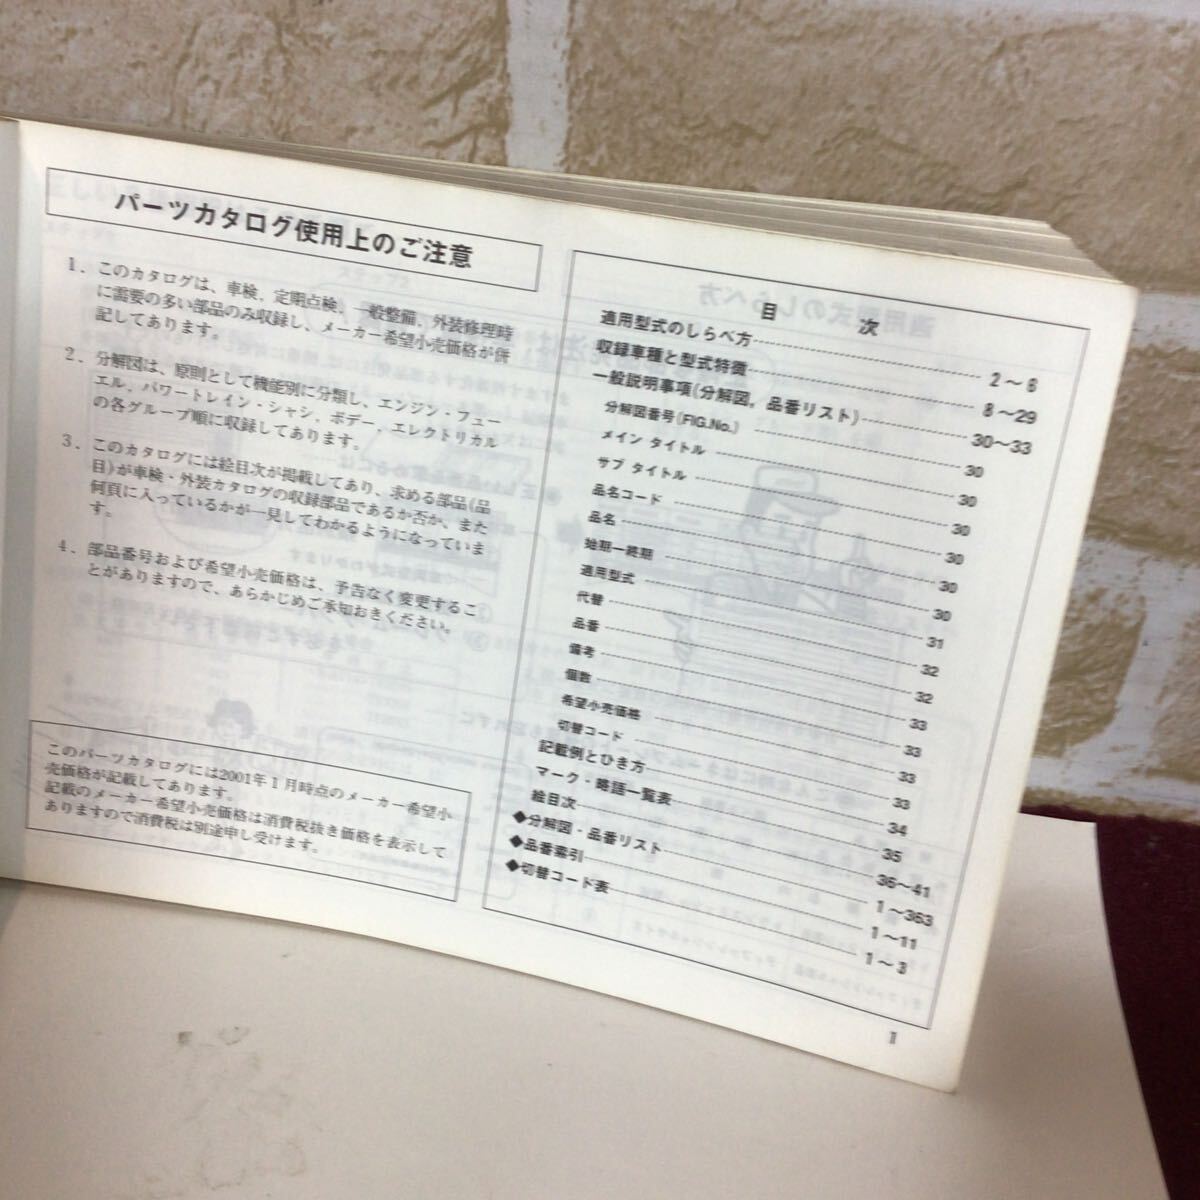 パーツカタログ使用上のご注意
1. このカタログは、車検, 定期点検, 一般整備, 外装修理時
に需要の多い部品のみ収録し、メーカー希望小売価格が併
記してあります。
2. 分解図は、原則として機能別に分類し、エンジン・フュー
エル, パワートレイン・シャシ, ボデー, エレクトリカル
の各グループ順に収録してあります。
3. このカタログには絵目次が掲載してあり、求める部品(品
目)が車検・外装カタログの収録部品であるか否か、また
何頁に入っているかが一見してわかるようになっていま
す。
4. 部品番号および希望小売価格は、予告なく変更するこ
とがありますので、あらかじめご承知おきください。
このパーツカタログには2001年1月時点のメーカー希望小
売価格が記載してあります。
記載のメーカー希望小売価格は消費税抜き価格を表示して
ありますので消費税は別途申し受けます。
目 次
適用型式のしらべ方 2〜6
収録車種と型式特徴 8〜29
一般説明事項(分解図, 品番リスト) 30〜33
分解図番号(FIG.No.) 30
メイン タイトル 30
サブ タイトル 30
品名コード 30
品名 30
始期ー終期 30
適用型式 31
代替 32
品番 32
備考 33
個数 33
希望小売価格 33
切替コード 33
記載例とひき方 34
マーク・略語一覧表 35
絵目次 36〜41
◆分解図・品番リスト 1〜363
◆品番索引 1〜11
◆切替コード表 1〜3
1